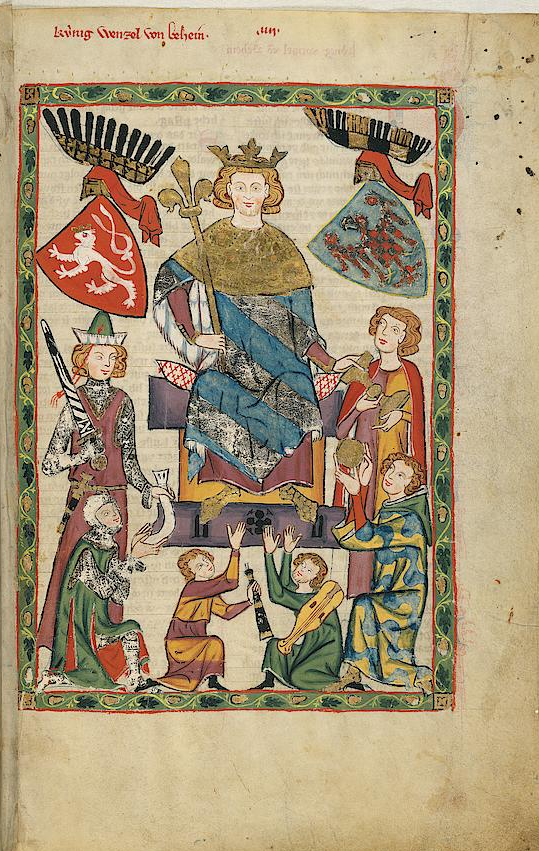 Kúnig Wenzel von behein·
·iiij·